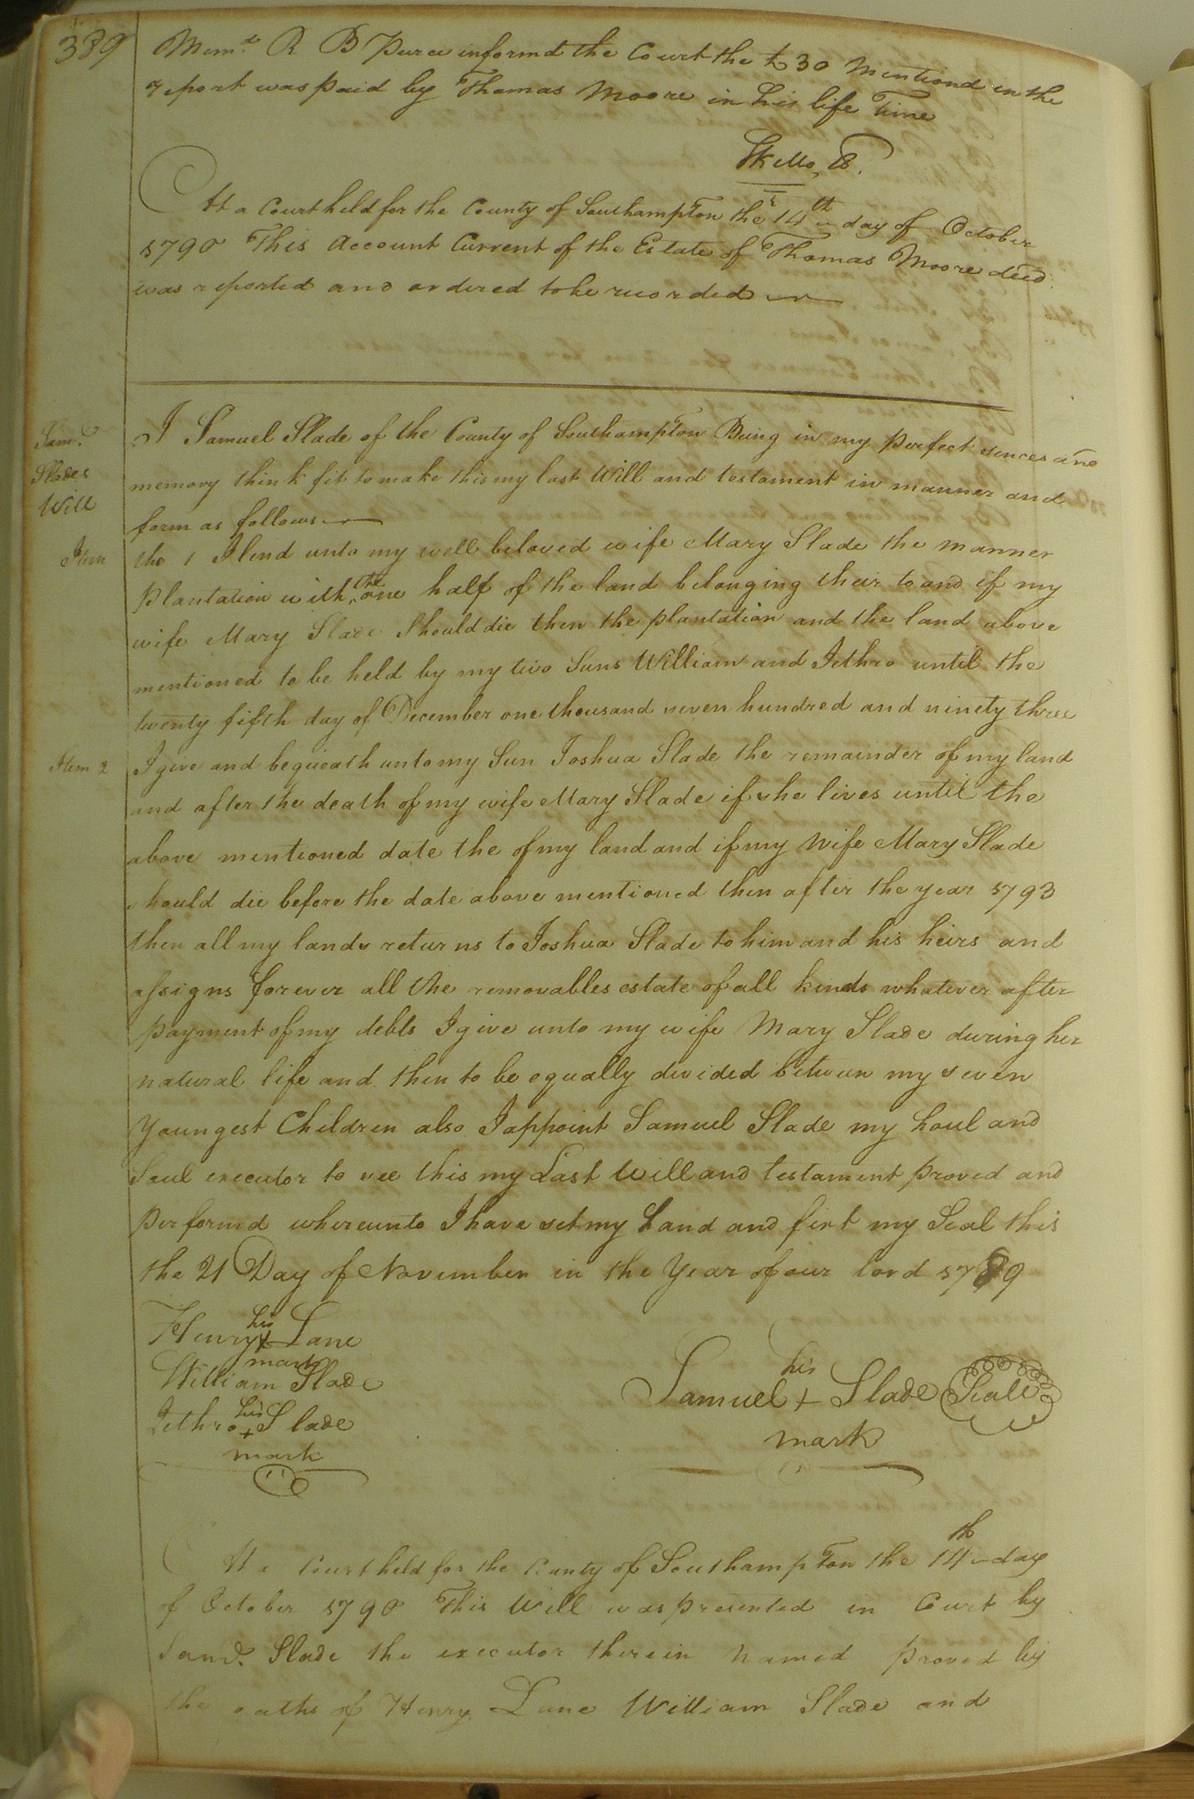 389
Memd. R B Purce informd the Court the £30 Mentiond in the
report was paid by Thomas Moore in his life Time
At a Court held for the County of Southampton the 14th day of October
1790 This Account Current of the Estate of Thomas Moore decd.
was reported and ordered to be recorded
Sam.l
Slades
Will
I Samuel Slade of the County of Southampton Being in my perfect sences and
memory think fit to make this my last Will and testament in manner and
form as follows
Item
the 1 I lend unto my well beloved wife Mary Slade the manner
plantation with the one half of the land belonging their to and if my
wife Mary Slade Should die then the plantation and the land above
mentioned to be held by my two Suns William and Jethro until the
twenty fifth day of December one thousand seven hundred and ninety three
Item 2
I give and bequeath unto my Sun Joshua Slade the remainder of my land
and after the death of my wife Mary Slade if she lives until the
above mentioned date the of my land and if my Wife Mary Slade
should die before the date above mentioned then after the year 1793
then all my lands returns to Joshua Slade to him and his heirs and
assigns forever all the removables estate of all kinds whatever after
payment of my debts I give unto my wife Mary Slade during her
natural life and then to be equally divided between my seven
youngest Children also I appoint Samuel Slade my houl and
Soul executor to see this my Last Will and testament proved and
performd whereunto I have set my hand and fixt my Seal this
the 21 Day of November in the Year of our lord 1789
Henry his + Lane
mark
William Slade
Jethro his + Slade
mark
his
Samuel + Slade Seal
mark
At a Court held for the County of Southampton the 14th day
of October 1790 This Will was presented in Court by
Saml. Slade the executor therein named proved by
the oaths of Henry Lane William Slade and